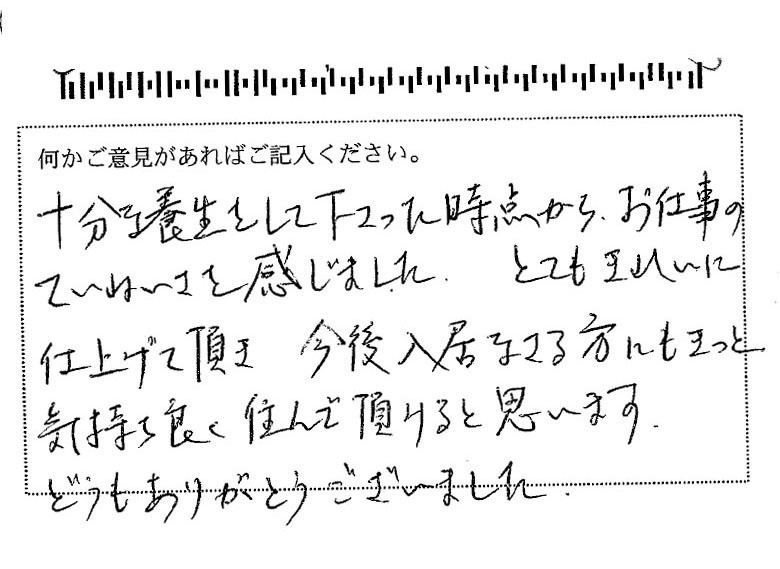 何かご意見があればご記入ください。
十分な養生をして下さった時点から、お仕事の
ていねいさを感じました。 とてもきれいに
仕上げて頂き 今後入居なさる方にもきっと
気持ち良く住んで頂けると思います。
どうもありがとうございました。